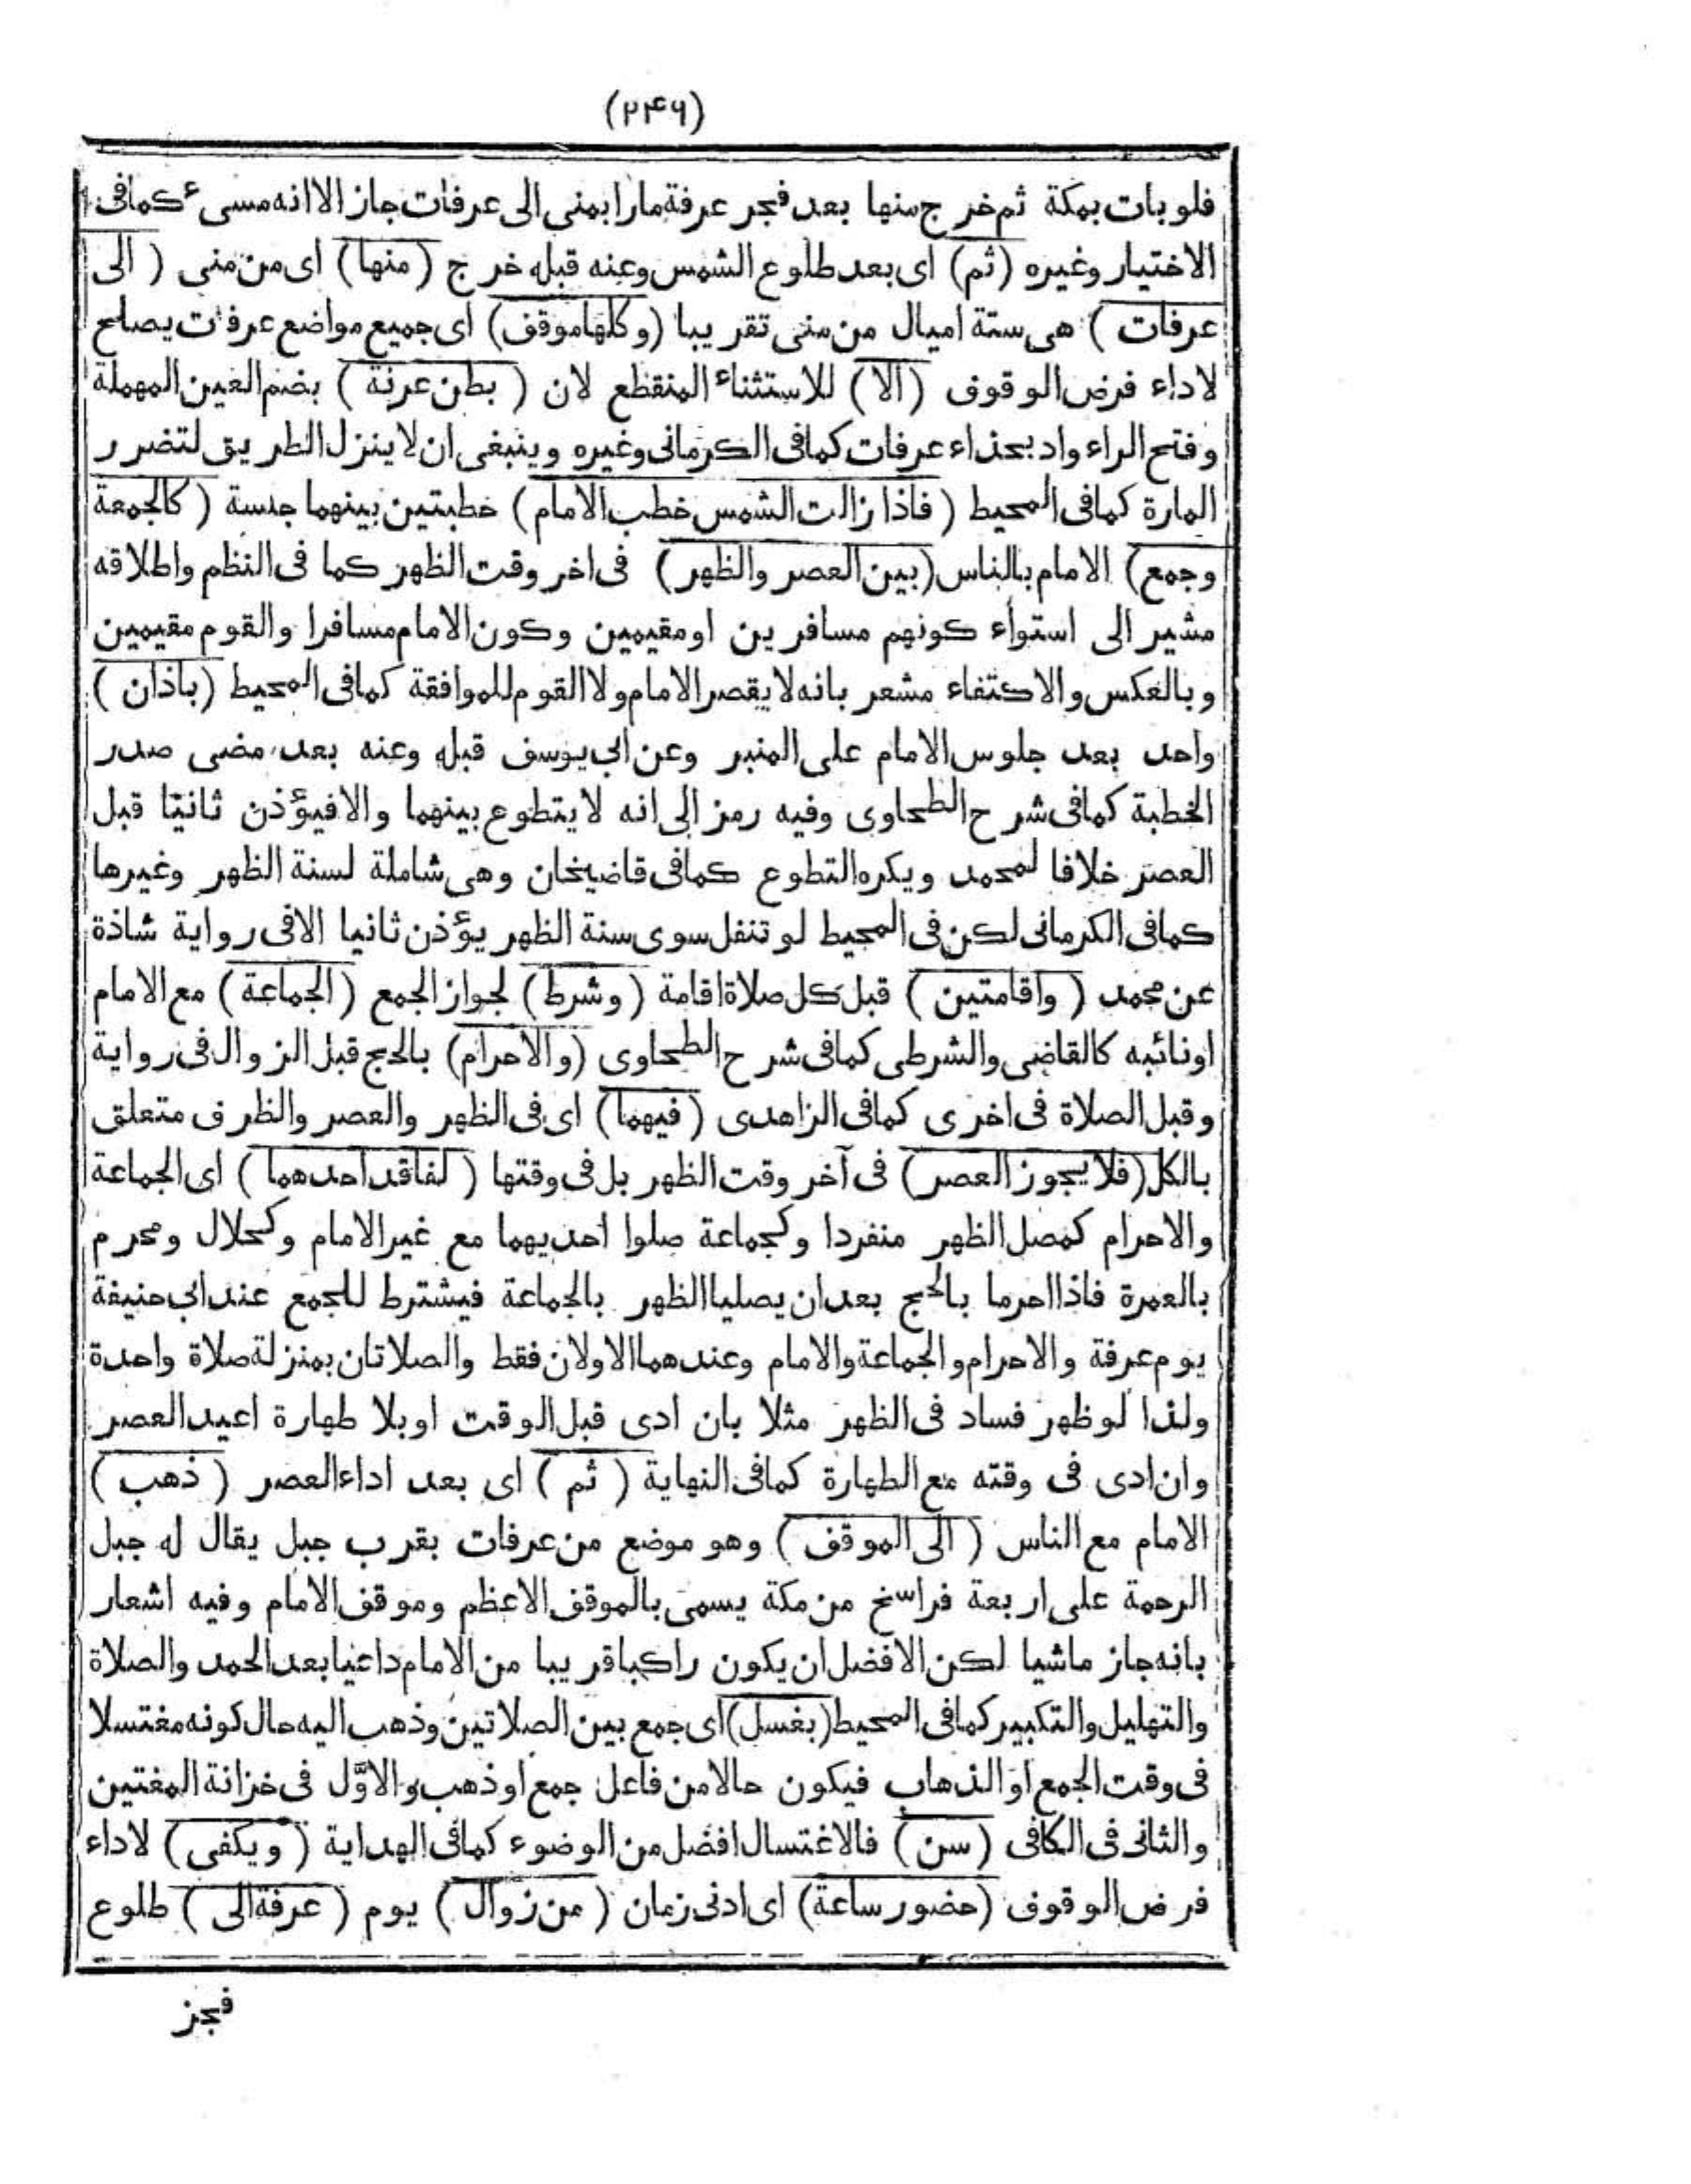 (۲۴۶)
فلو بات بمكة ثم خرج منها بعد فجر عرفة مارا بمنى الى عرفات جاز الا انه مسىء كما فى
الاختيار وغيره (ثم) اى بعد طلوع الشمس وعنه قبله خرج (منها) اى من منى (الى
عرفات) هى ستة اميال من منى تقريبا (وكلها موقف) اى جميع مواضع عرفات يصلح
لاداء فرض الوقوف (الا) للاستثناء المنقطع لان (بطن عرنة) بضم العين المهملة
وفتح الراء واد بحذاء عرفات كما فى الكرمانى وغيره وينبغى ان لا ينزل الطريق لتضرر
المارة كما فى المحيط (فاذا زالت الشمس خطب الامام) خطبتين بينهما جلسة (كالجمعة
وجمع) الامام بالناس (بين العصر والظهر) فى اخر وقت الظهر كما فى النظم واطلاقه
مشير الى استواء كونهم مسافرين او مقيمين وكون الامام مسافرا والقوم مقيمين
وبالعكس والاكتفاء مشعر بانه لا يقصر الامام ولا القوم للموافقة كما فى المحيط (باذان)
واحد بعد جلوس الامام على المنبر وعن ابى يوسف قبله وعنه بعد مضى صدر
الخطبة كما فى شرح الطحاوى وفيه رمز الى انه لا يتطوع بينهما والا فيؤذن ثانيا قبل
العصر خلافا لمحمد ويكره التطوع كما فى قاضيخان وهى شاملة لسنة الظهر وغيرها
كما فى الكرمانى لكن فى المحيط لو تنفل سوى سنة الظهر يؤذن ثانيا الا فى رواية شاذة
عن محمد (واقامتين) قبل كل صلاة اقامة (وشرط) لجواز الجمع (الجماعة) مع الامام
او نائبه كالقاضى والشرطى كما فى شرح الطحاوى (والاحرام) بالحج قبل الزوال فى رواية
وقبل الصلاة فى اخرى كما فى الزاهدى (فيهما) اى فى الظهر والعصر والظرف متعلق
بالكل (فلا يجوز العصر) فى آخر وقت الظهر بل فى وقتها (لفاقد احدهما) اى الجماعة
والاحرام كمصل الظهر منفردا وكجماعة صلوا احديهما مع غير الامام وكحلال ومحرم
بالعمرة فاذا احرما بالحج بعد ان يصليا الظهر بالجماعة فيشترط للجمع عند ابى حنيفة
يوم عرفة والاحرام والجماعة والامام وعندهما الاولان فقط والصلاتان بمنزلة صلاة واحدة
ولذا لو ظهر فساد فى الظهر مثلا بان ادى قبل الوقت او بلا طهارة اعيد العصر
وان ادى فى وقته مع الطهارة كما فى النهاية (ثم) اى بعد اداء العصر (ذهب)
الامام مع الناس (الى الموقف) وهو موضع من عرفات بقرب جبل يقال له جبل
الرحمة على اربعة فراسخ من مكة يسمى بالموقف الاعظم وموقف الامام وفيه اشعار
بانه جاز ماشيا لكن الافضل ان يكون راكبا قريبا من الامام داعيا بعد الحمد والصلاة
والتهليل والتكبير كما فى المحيط (بغسل) اى جمع بين الصلاتين وذهب اليه حال كونه مغتسلا
فى وقت الجمع او الذهاب فيكون حالا من فاعل جمع او ذهب والاوّل فى خزانة المفتين
والثانى فى الكافى (سن) فالاغتسال افضل من الوضوء كما فى الهداية (ويكفى) لاداء
فرض الوقوف (حضور ساعة) اى ادنى زمان (من زوال) يوم (عرفة الى) طلوع
فجر